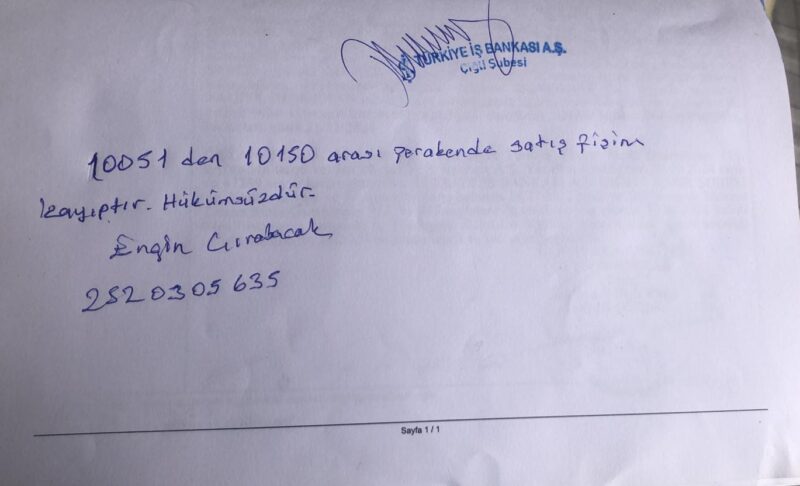 TÜRKİYE İŞ BANKASI A.Ş.
Çiğli Şubesi
10051 den 10150 arası perakende satış fişim
kayıptır. Hükümsüzdür.
Engin Cırabacak
2520305635
Sayfa 1 / 1